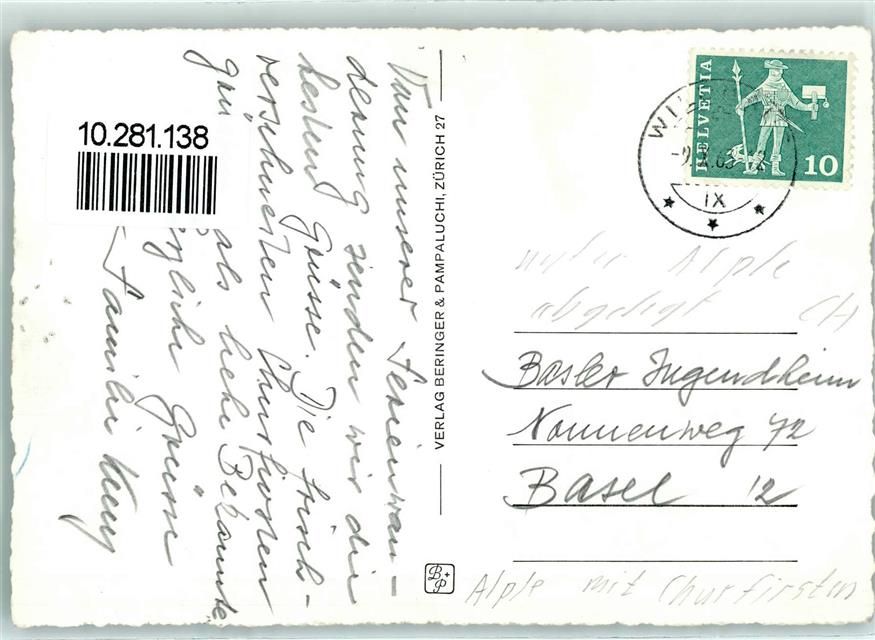 10.281.138
Von unserer Ferienwan-
derung senden wir die
besten Grüsse. Die frisch-
verschneiten Churfirsten
als liebe Bekannte
Grüsse
Familie
VERLAG BERINGER & PAMPALUCHI, ZÜRICH 27
B+P
HELVETIA
10
IX
unter Alple
abgelegt CH
Basler Jugendheim
Nonnenweg 72
Basel 12
Alple mit Churfirsten